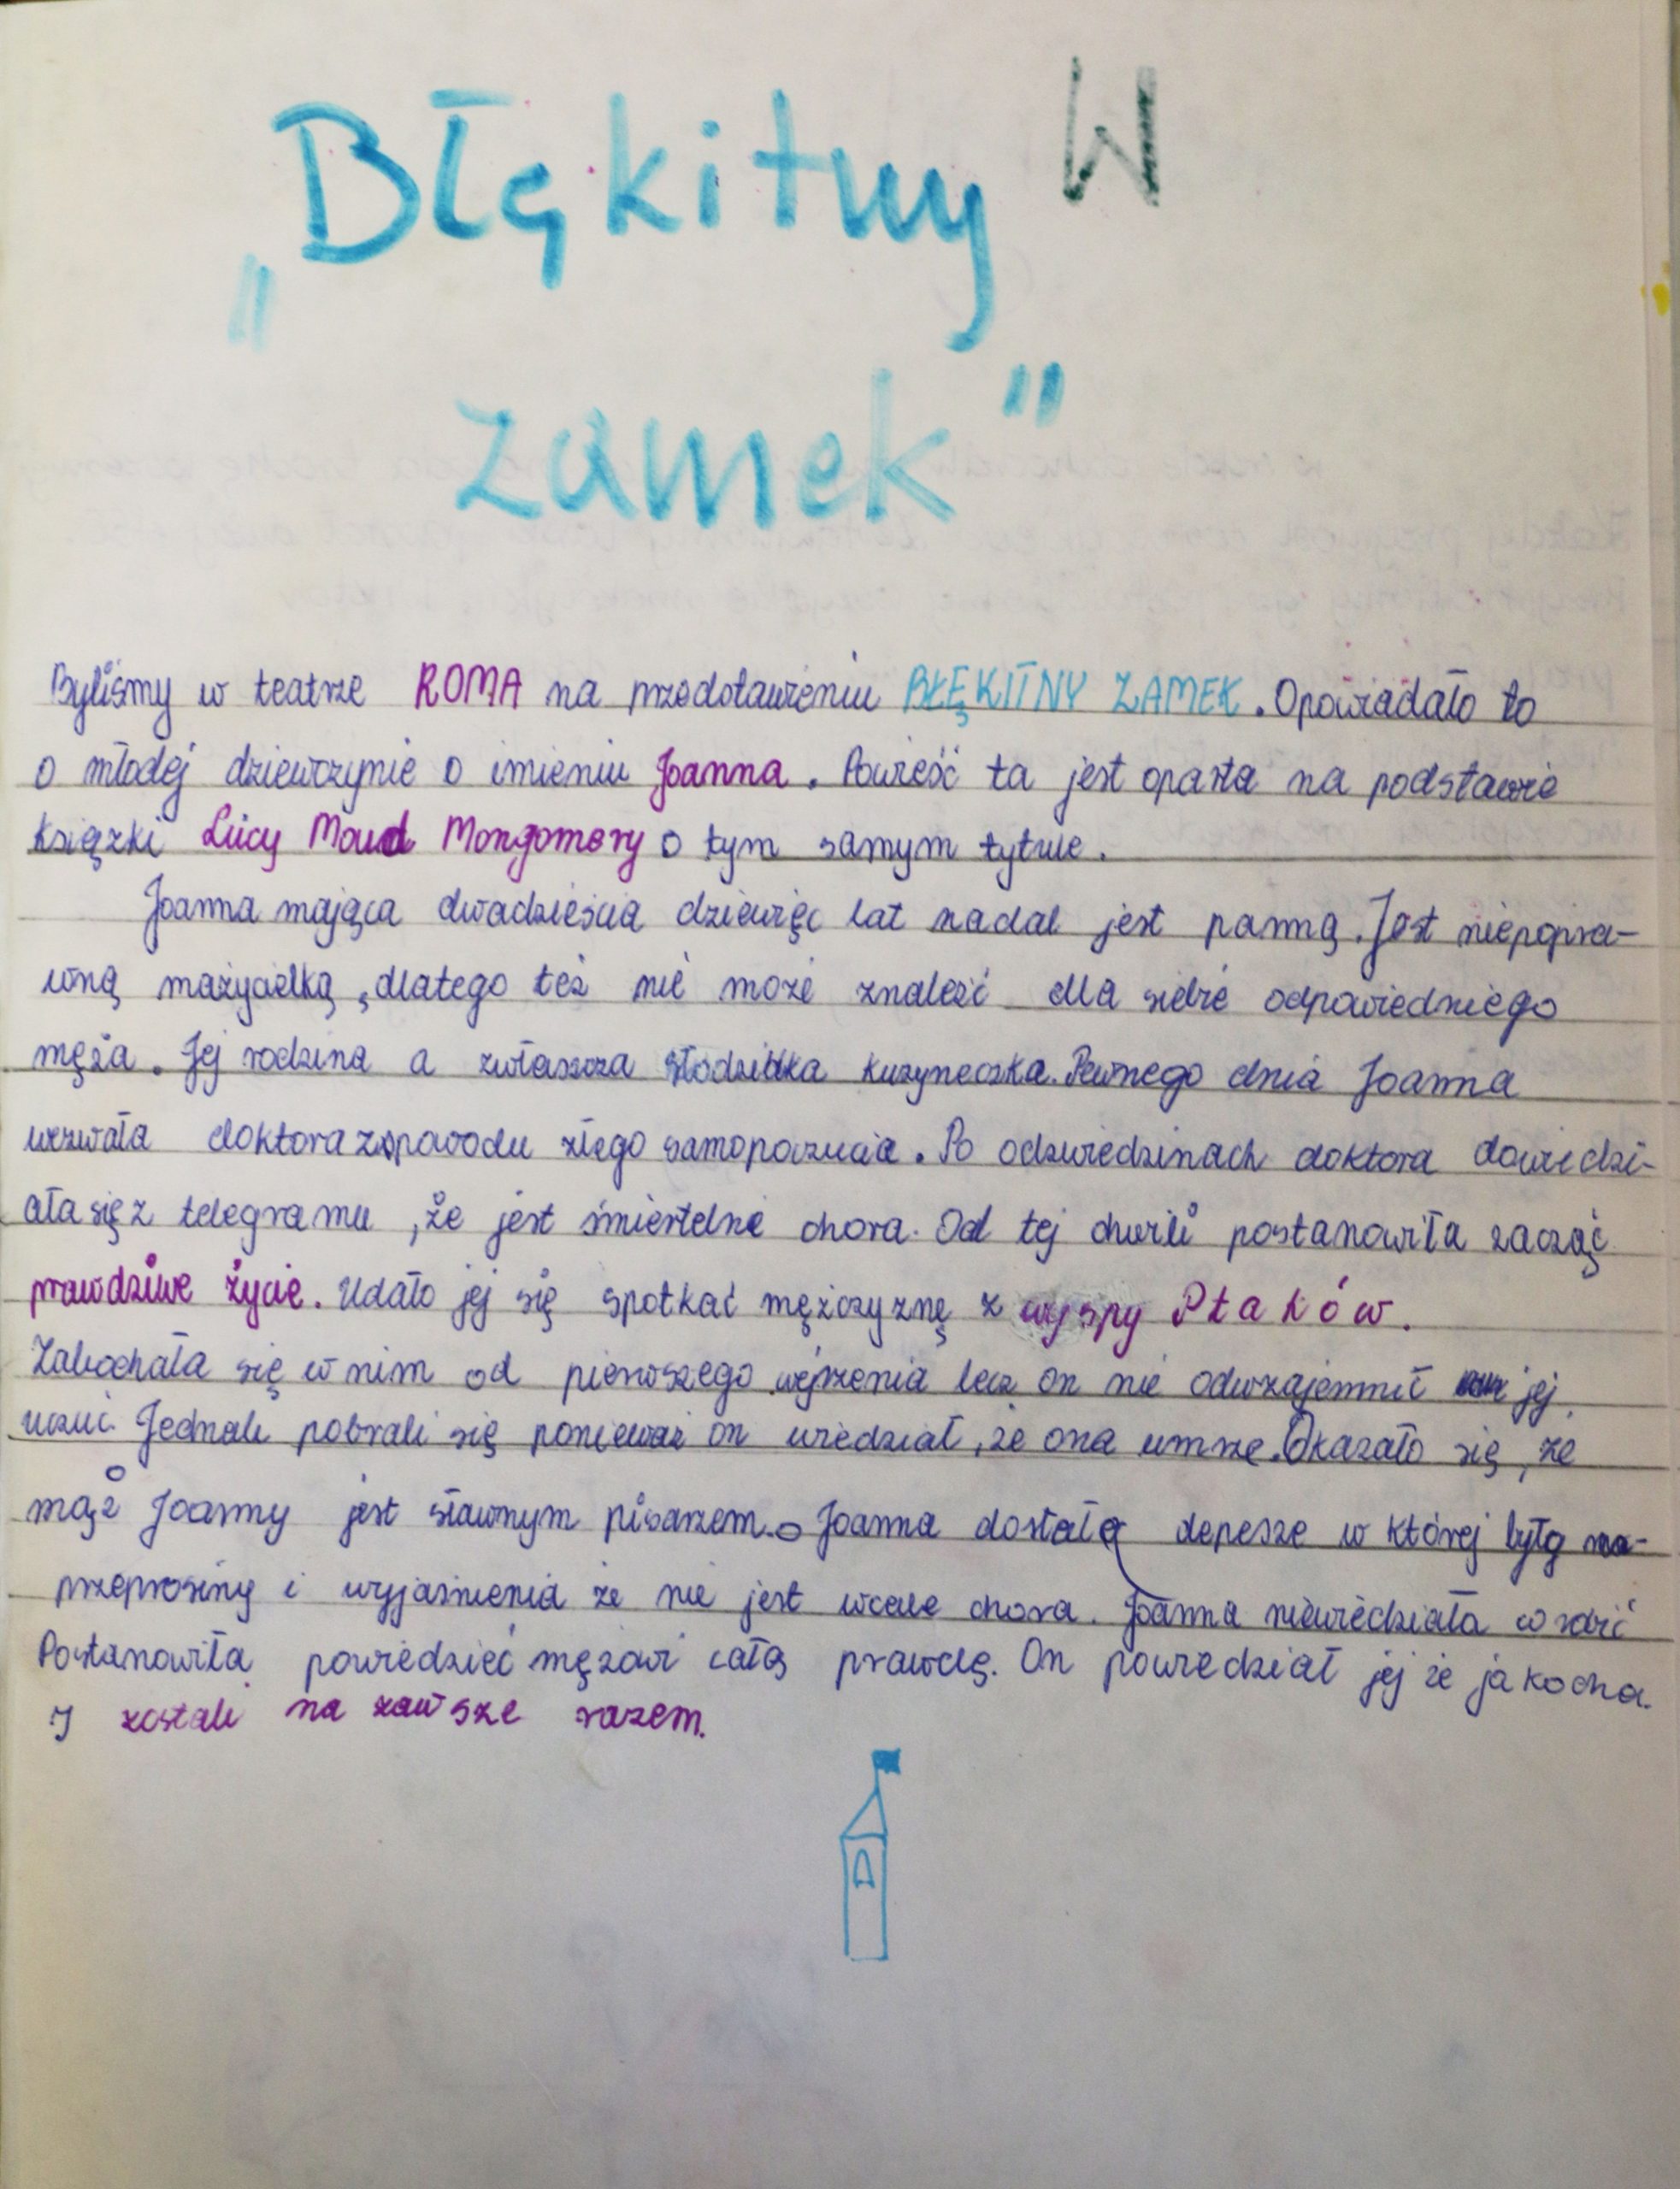 „Błękitny W
zamek"
Byliśmy w teatrze ROMA na przedstawieniu BŁĘKITNY ZAMEK. Opowiadało to
o młodej dziewczynie o imieniu Joanna. Powieść ta jest oparta na podstawie
książki Lucy Moud Mongomery o tym samym tytule.
Joanna mająca dwadzieścia dziewięc lat nadal jest panną. Jest niepopra-
wną mażycielką, dlatego też nie może znaleźć dla siebie odpowiedniego
męża. Jej rodzina a zwłaszcza słodziutka kuzyneczka. Pewnego dnia Joanna
wezwała doktora z powodu złego samopoczucia. Po odzwiedzinach doktora dowiedzi-
ała się z telegramu, że jest śmiertelne chora. Od tej chwili postanowiła zacząć
prawdziwe życie. Udało jej się spotkać mężczyznę z wyspy Ptaków.
Zakochała się w nim od pierwszego wejrzenia lecz on nie odwzajemnił jej
uczuć. Jednak pobrali się ponieważ on wiedział, że ona umrze. Okazało się, że
mąż Joanny jest sławnym pisarzem. Joanna dostała depesze w której były
przeprosiny i wyjaśnienia że nie jest wcale chora. Joanna niewiedziała co robić
Postanowiła powiedzieć mężowi całą prawdę. On powiedział jej że ja kocha.
I zostali na zawsze razem.